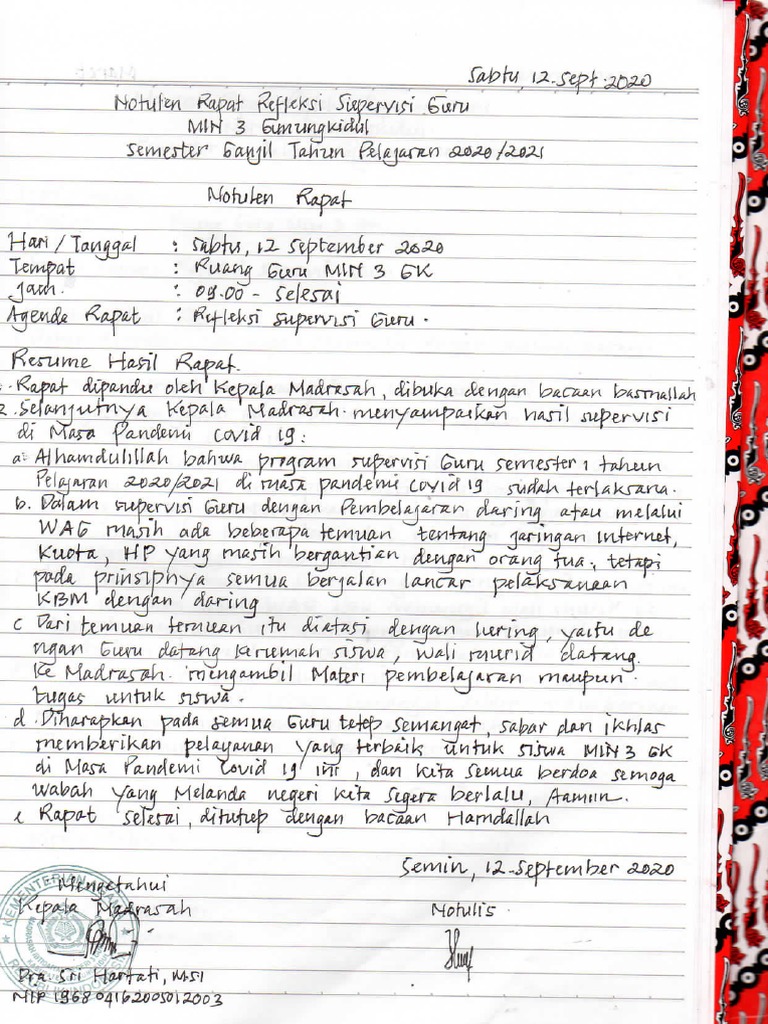 Sabtu, 12-Sept-2020
Notulen Rapat Refleksi Supervisi Guru
MIN 3 Gunungkidul
Semester Ganjil Tahun Pelajaran 2020/2021
Notulen Rapat
Hari / Tanggal : Sabtu, 12 September 2020
Tempat : Ruang Guru MIN 3 GK
Jam. : 09.00 - Selesai
Agenda Rapat : Refleksi Supervisi Guru.
Resume Hasil Rapat.
Rapat dipandu oleh Kepala Madrasah, dibuka dengan bacaan basmallah
2. Selanjutnya Kepala Madrasah menyampaikan hasil supervisi
di Masa Pandemi Covid 19:
a. Alhamdulillah bahwa program supervisi Guru semester 1 tahun
Pelajaran 2020/2021 di masa pandemi Covid 19 sudah terlaksana.
b. Dalam supervisi Guru dengan Pembelajaran daring atau melalui
WAG masih ada beberapa temuan tentang jaringan Internet,
Kuota, HP yang masih bergantian dengan orang tua, tetapi
pada prinsipnya semua berjalan lancar pelaksanaan
KBM dengan daring
c Dari temuan temuan itu diatasi dengan luring, yaitu de
ngan Guru datang kerumah siswa, wali murid datang.
Ke Madrasah mengambil Materi pembelajaran maupun.
tugas untuk siswa.
d. Diharapkan pada semua Guru tetep semangat, sabar dan ikhlas
memberikan pelayanan yang terbaik untuk siswa MIN 3 GK
di Masa Pandemi Covid 19 ini, dan kita semua berdoa semoga
wabah yang Melanda negeri kita segera berlalu, Aamiin.
e Rapat selesai, ditutup dengan bacaan Hamdallah
Semin, 12-September 2020
Mengetahui
Kepala Madrasah
Notulis.
KEMENTERIAN
Dra Sri Hartati, M.SI
NIP 196804162005012003